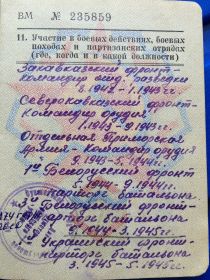 ВМ № 235859
11. Участие в боевых действиях, боевых
походах и партизанских отрядах
(где, когда и в какой должности)
Закавказский фронт
командир отд. разведки
8.1942 - 1.1943 гг.
Северокавказский фронт-
Командир орудия
1.1943 - 9.1943 гг.
Отдельная Приморская
Армия - Командир орудия
9.1943 - 5.1944 гг.
1й Белорусский фронт
парторг батальона
5.1944 - 9.1944 гг.
Белорусский фронт-
парторг батальона
9.1944 - 3.1945 гг.
Украинский фронт-
парторг батальона
3.1945 - 5.1945 гг.